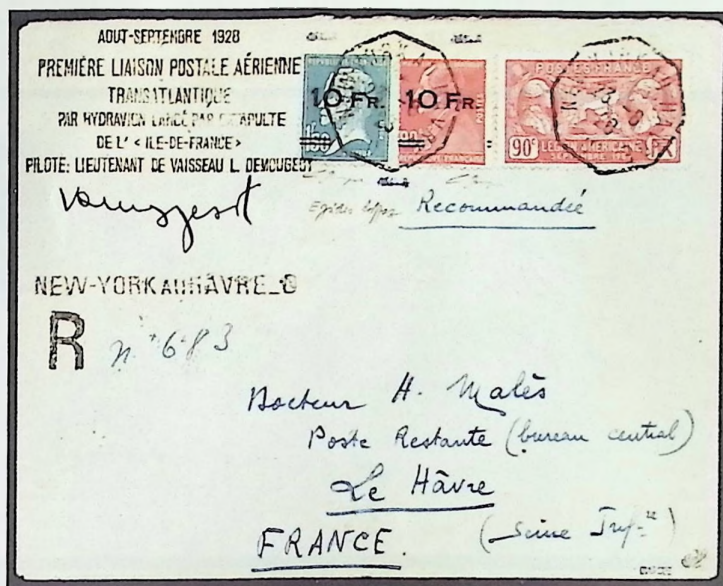 AOUT-SEPTEMBRE 1928
PREMIÈRE LIAISON POSTALE AÉRIENNE
TRANSATLANTIQUE
PAR HYDRAVION LANCÉ PAR CATAPULTE
DE L' « ILE-DE-FRANCE »
PILOTE: LIEUTENANT DE VAISSEAU L. DEMOUGEOT
10 FR.
1F50
10 FR.
90
POSTES FRANCE
90c
LEGION AMERICAINE
SEPTEMBRE
23 - 8
28
Recommandée
NEW-YORK AU HAVRE_C
R n° 683
Docteur H. Malès
Poste Restante (bureau central)
Le Hâvre
(Seine Infre)
FRANCE.